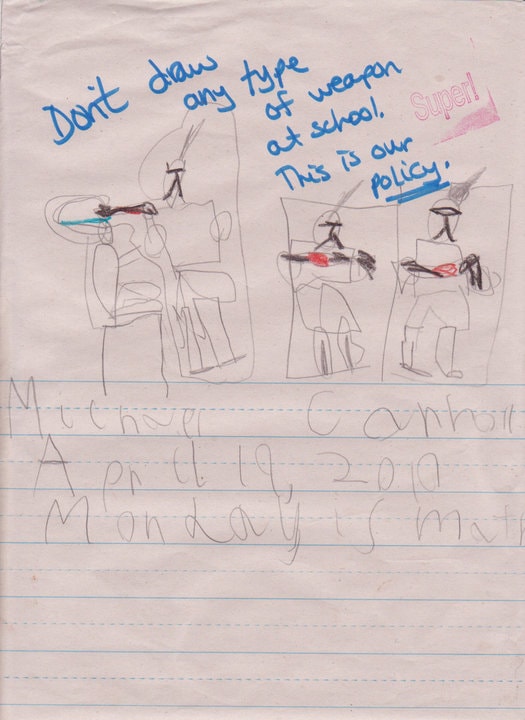 Don't draw
any type
of weapon
at school.
This is our
policy.
Super!
Michael
April 19, 2010
Monday is mat